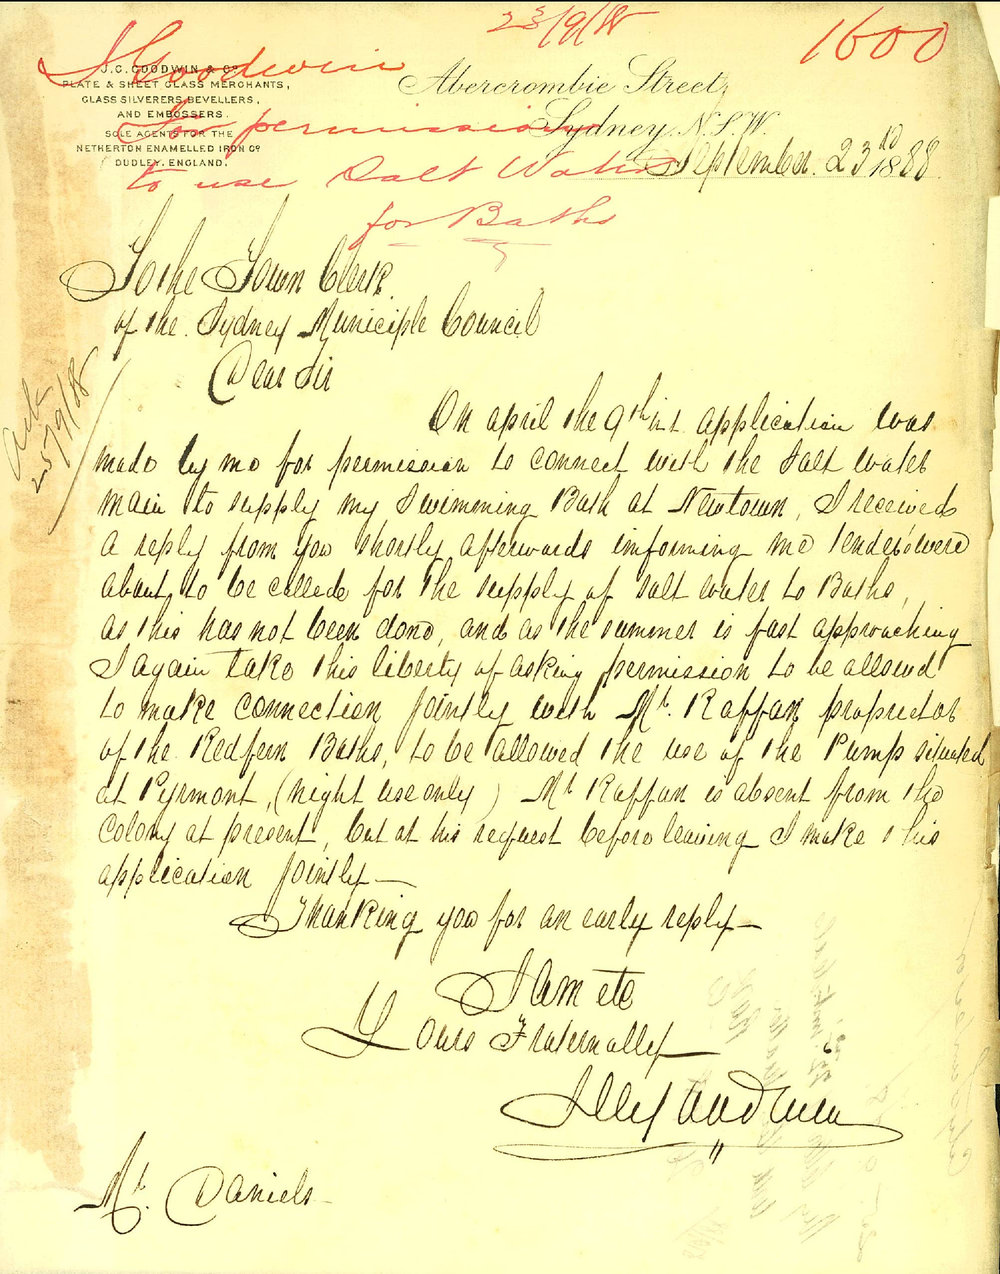 23/9/88
1600
J Goodwin
for permission
to use Salt Water
for Baths
J. C. GOODWIN & Co
PLATE & SHEET GLASS MERCHANTS,
GLASS SILVERERS, BEVELLERS,
AND EMBOSSERS.
SOLE AGENTS FOR THE
NETHERTON ENAMELLED IRON Co
DUDLEY, ENGLAND.
Abercrombie Street,
Sydney, N.S.W.
September. 23rd 1888
To the Town Clerk.
of the Sydney Municiple Council
Dear Sir
Ack
25/9/88
On april the 9th application was
made by me for permission to connect with the Salt water
main to supply my Swimming Bath at Newtown, I received
a reply from you shortly afterwards imforming me tenders were
about to be called for the supply of salt water to Baths,
as this has not been done, and as the summer is fast approaching
I again take this liberty of asking permission to be allowed
to make connection jointly with Mr. Raffan proprietor
of the Redfern Baths, to be allowed the use of the Pump situated
at Pyrmont, (night use only) Mr Raffan is absent from the
colony at present, but at his request before leaving I make this
application jointly—
Thanking you for an early reply—
I am etc
Yours Fraternally
Goodwin
Mr. Daniels